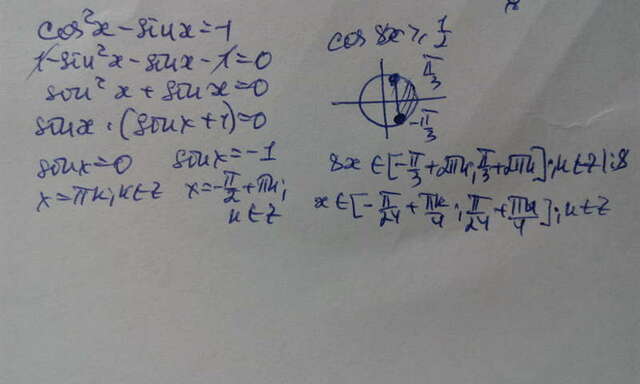 cos²x - sin x = -1
1 - sin²x - sin x - 1 = 0
sin²x + sin x = 0
sin x · (sin x + 1) = 0
sin x = 0 sin x = -1
x = πk; k∈Z x = -π/2 + πk;
k∈Z
cos 8x ≥ 1/2
π/3
-π/3
8x ∈ [-π/3 + 2πk; π/3 + 2πk]; k∈Z | :8
x ∈ [-π/24 + πk/4; π/24 + πk/4]; k∈Z